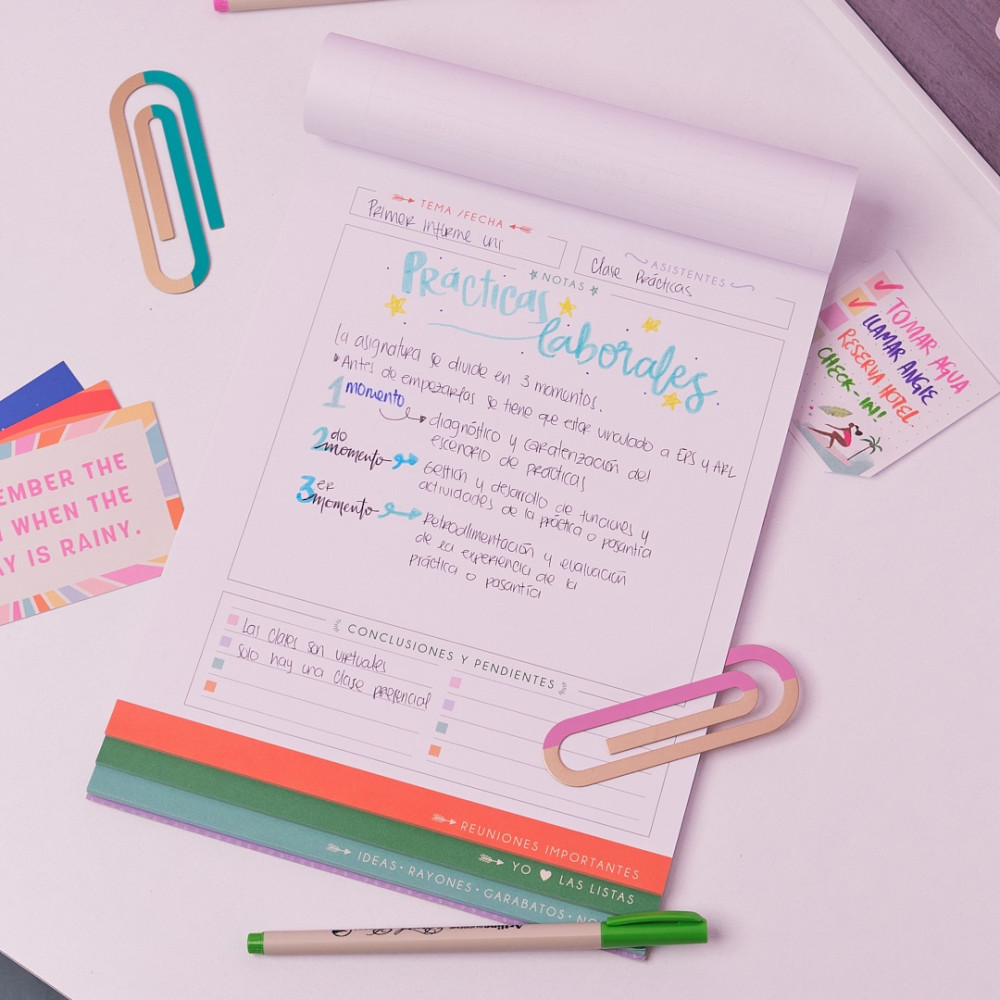 TEMA /FECHA
Primer informe uni
ASISTENTES
Clase Prácticas
NOTAS
Prácticas
laborales
La asignatura se divide en 3 momentos.
Antes de empezarlas se tiene que estar vinculado a EPS y ARL
1 momento
diagnóstico y caraterización del
escenario de prácticas
2do
momento
Gestión y desarrollo de funciones y
actividades de la práctica o pasantía
3ER
momento
Retroalimentación y evaluación
de la experiencia de la
práctica o pasantía
CONCLUSIONES Y PENDIENTES
Las clases son virtuales
Solo hay una clase presencial
REUNIONES IMPORTANTES
YO LAS LISTAS
IDEAS · RAYONES · GARABATOS ·
TOMAR AGUA
LLAMAR ANGIE
RESERVA HOTEL
CHECK-IN!
EMBER THE
WHEN THE
AY IS RAINY.